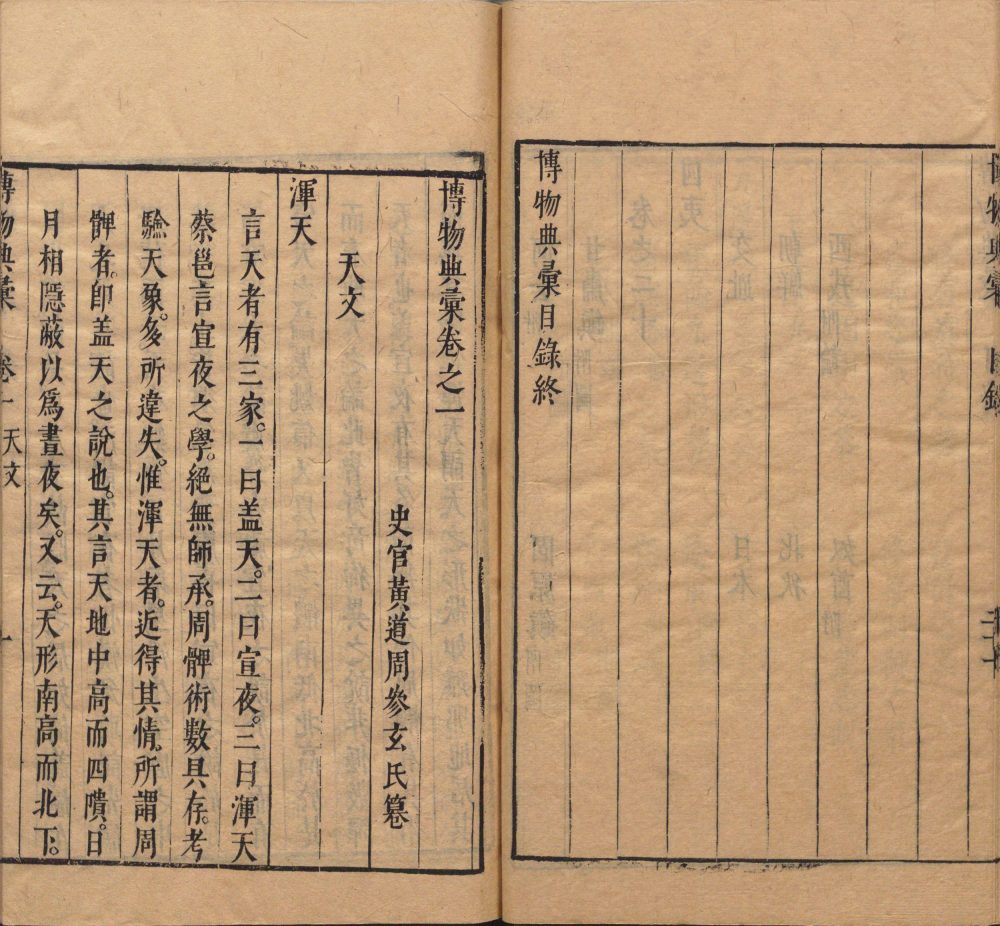 博物典彙目錄
博物典彙目錄終
博物典彙卷之一
史官黃道周參玄氏纂
天文
渾天
言天者有三家。一曰盖天。二曰宣夜。三曰渾天
蔡邕言宣夜之學。絕無師承。周髀術數具存。考
驗天象。多所違失。惟渾天者。近得其情。所謂周
髀者。卽盖天之說也。其言天地中高而四隤。日
月相隱蔽以爲晝夜矣。又云。天形南高而北下。
博物典彙 卷一 天文 一